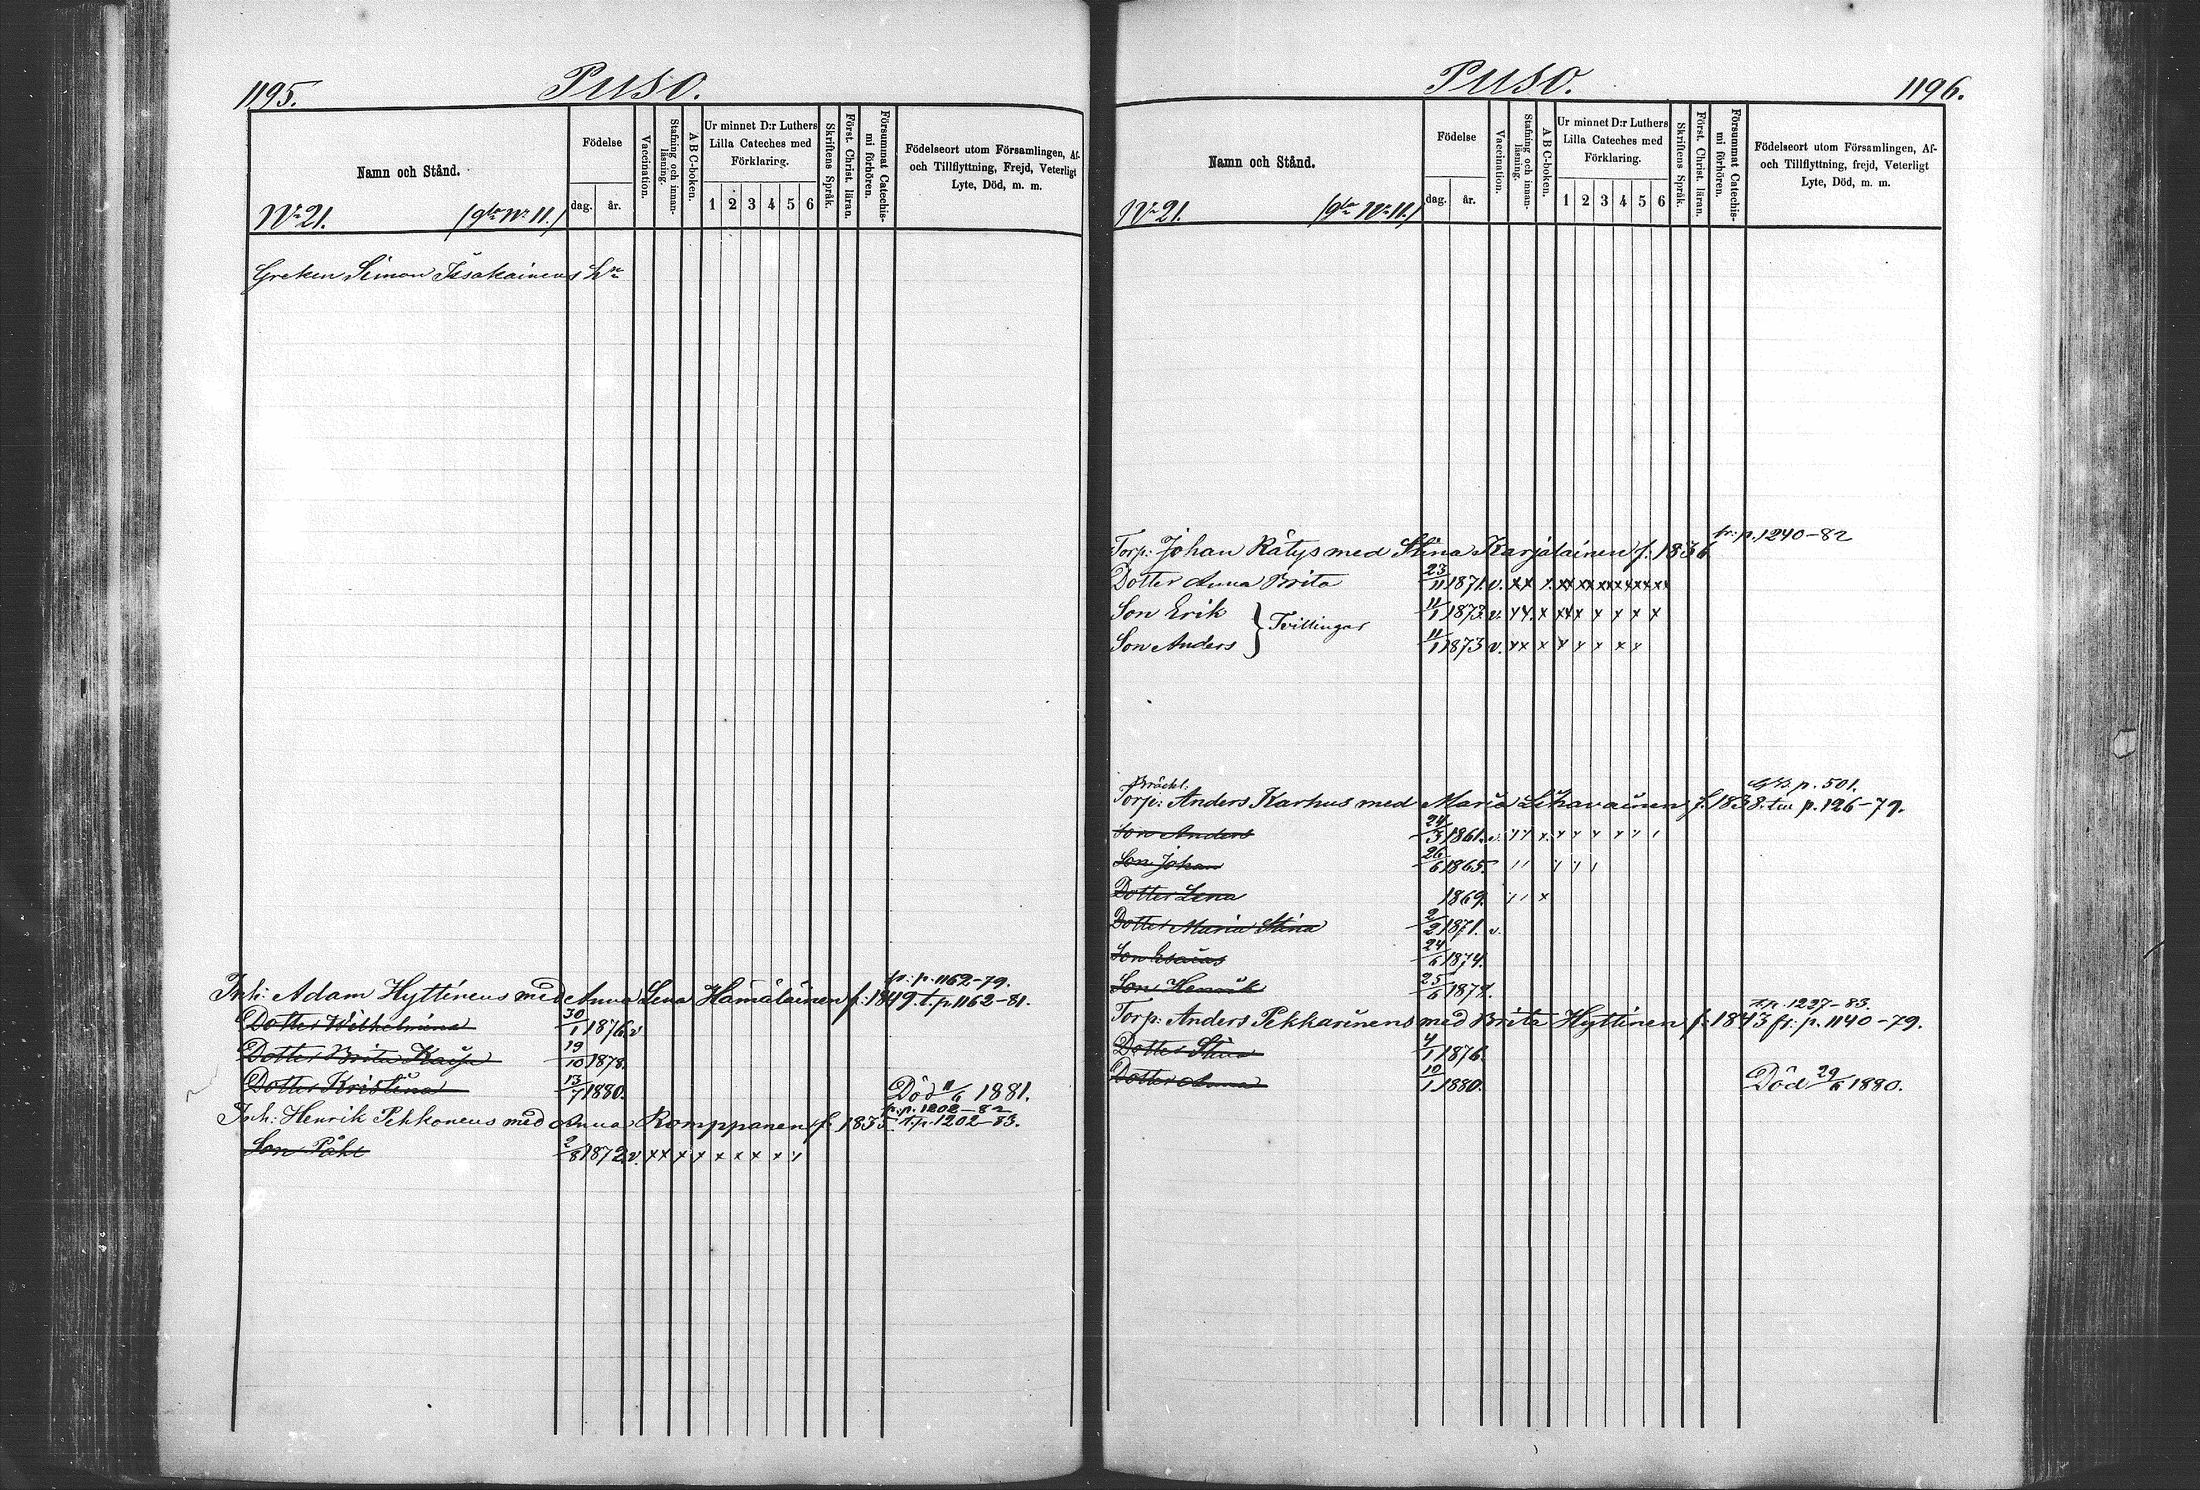 1195.
Puso.
Namn och Stånd.
Födelse
dag. år.
Vaccination.
Stafning och innan-
läsning.
A B C-boken.
Ur minnet D:r Luthers
Lilla Cateches med
Förklaring.
1 2 3 4 5 6
Skriftens Språk.
Först. Christ. läran.
Försummat Catechis-
mi förhören.
Födelseort utom Församlingen, Af-
och Tillflyttning, Frejd, Veterligt
Lyte, Död, m. m.
No 21. (gla No 11.)
Greken Simon Iisakainens
fr: p. 1162-79.
Inh: Adam Hyttinens med Anna Lena Hämäläinen f: 1849. t. p 1162-81.
Dotter Wilhelmina 30/1 1876. v
Dotter Brita Kaisa 19/10 1878.
Dotter Kristina 13/7 1880. Död 11/6 1881.
fr: p. 1202-82
Inh: Henrik Pekkonens med Anna Romppanen f: 1835. t. p. 1202-83.
Son Påhl 2/8 1872. v. x x x x x x x x x
Puso.
1196.
Namn och Stånd.
Födelse
dag. år.
Vaccination.
Stafning och innan-
läsning.
A B C-boken.
Ur minnet D:r Luthers
Lilla Cateches med
Förklaring.
1 2 3 4 5 6
Skriftens Språk.
Först. Christ. läran.
Försummat Catechis-
mi förhören.
Födelseort utom Församlingen, Af-
och Tillflyttning, frejd, Veterligt
Lyte, Död, m. m.
No 21. (gla No 11.)
fr: p. 1240-82
Torp: Johan Rätys med Stina Karjalainen f. 1836
Dotter Anna Brita 23/11 1871. v. xx x xx xx xx xx xx xx
Son Erik 11/1 1873. v. xx x xx x x x x x
Tvillingar
Son Anders 11/1 1873 v. xx x x x x x x
Bräckl. p. 501.
Torp: Anders Karhus med Maria Lihavainen f. 1838. till p. 126-79.
Son Anders 24/3 1861. v.
Son Johan 26/6 1865.
Dotter Lena 1869.
Dotter Maria Stina 2/2 1871. v.
Son Esaias 24/6 1874.
Son Henrik 25/6 1878.
t. p. 1227-83.
Torp: Anders Pekkarinens med Brita Hyttinen f: 1843 fr: p. 1140-79.
Dotter Stina 4/1 1876.
Dotter Anna 10/1 1880. Död 29/6 1880.